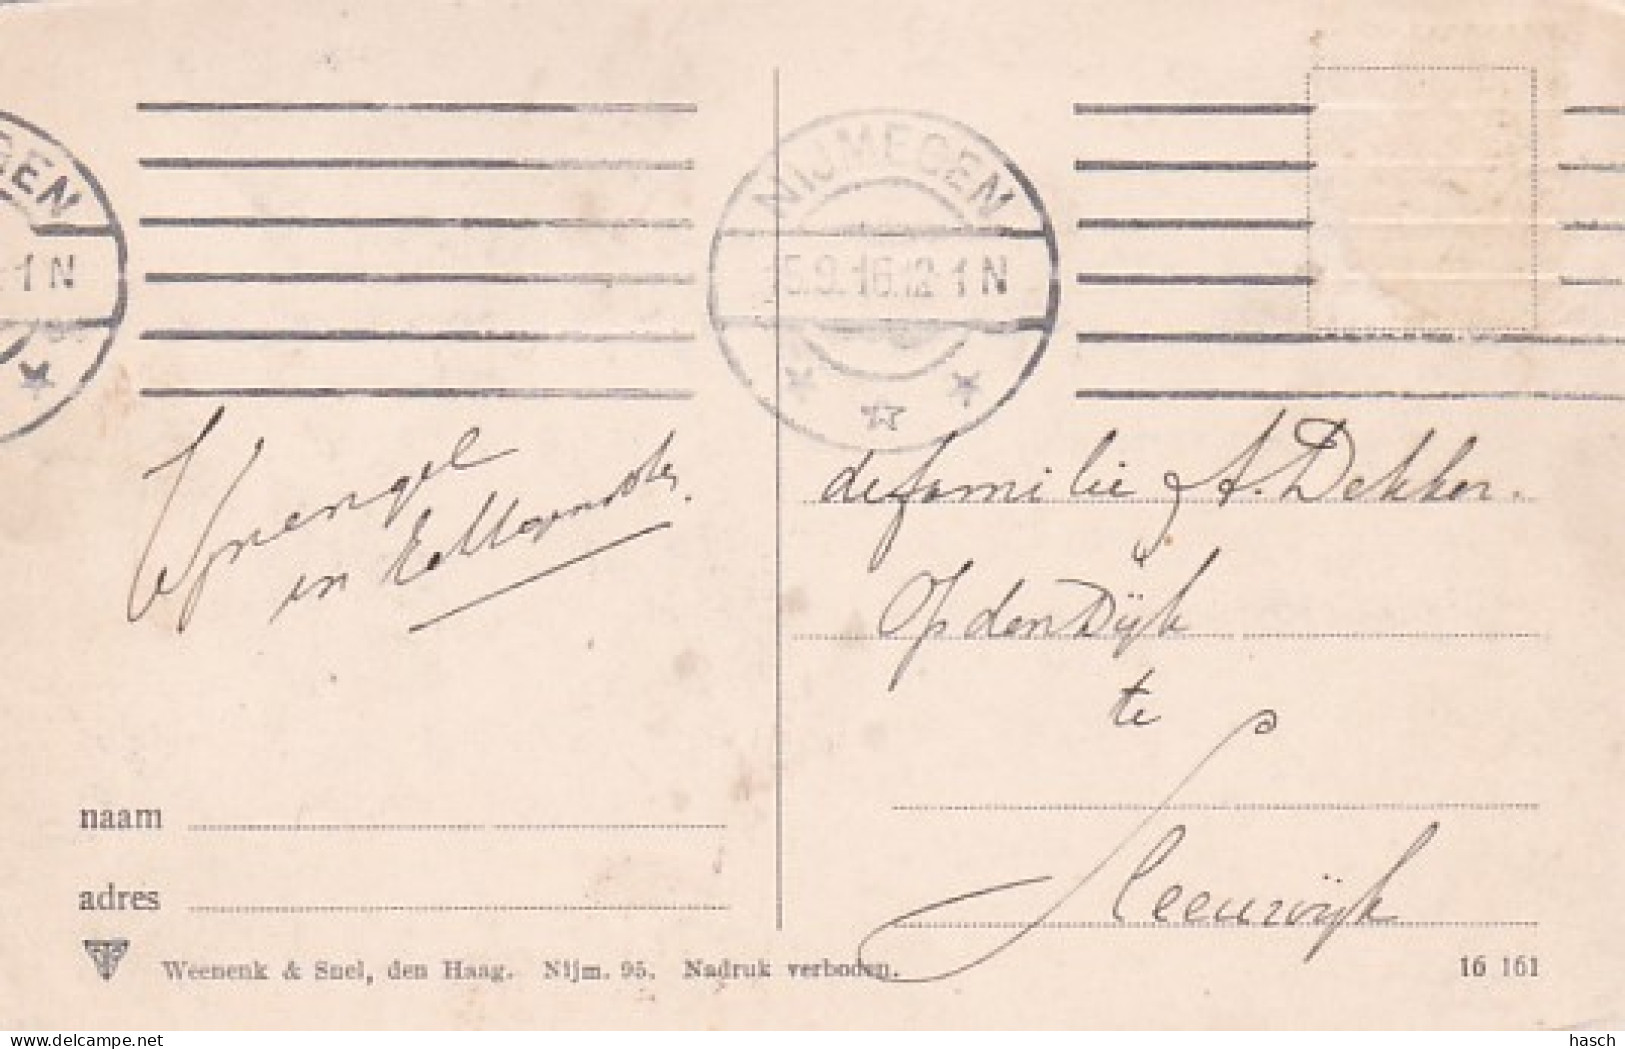 GEN
1 N
NIJMEGEN
15.9.16.12-1 N
Sprengel
in
de familie A. Dekker.
Op den Dijk
te
Sleeuwijk
naam
adres
Weenenk & Snel, den Haag. Nijm. 95. Nadruk verboden.
16 161
delcampe.net
hasch